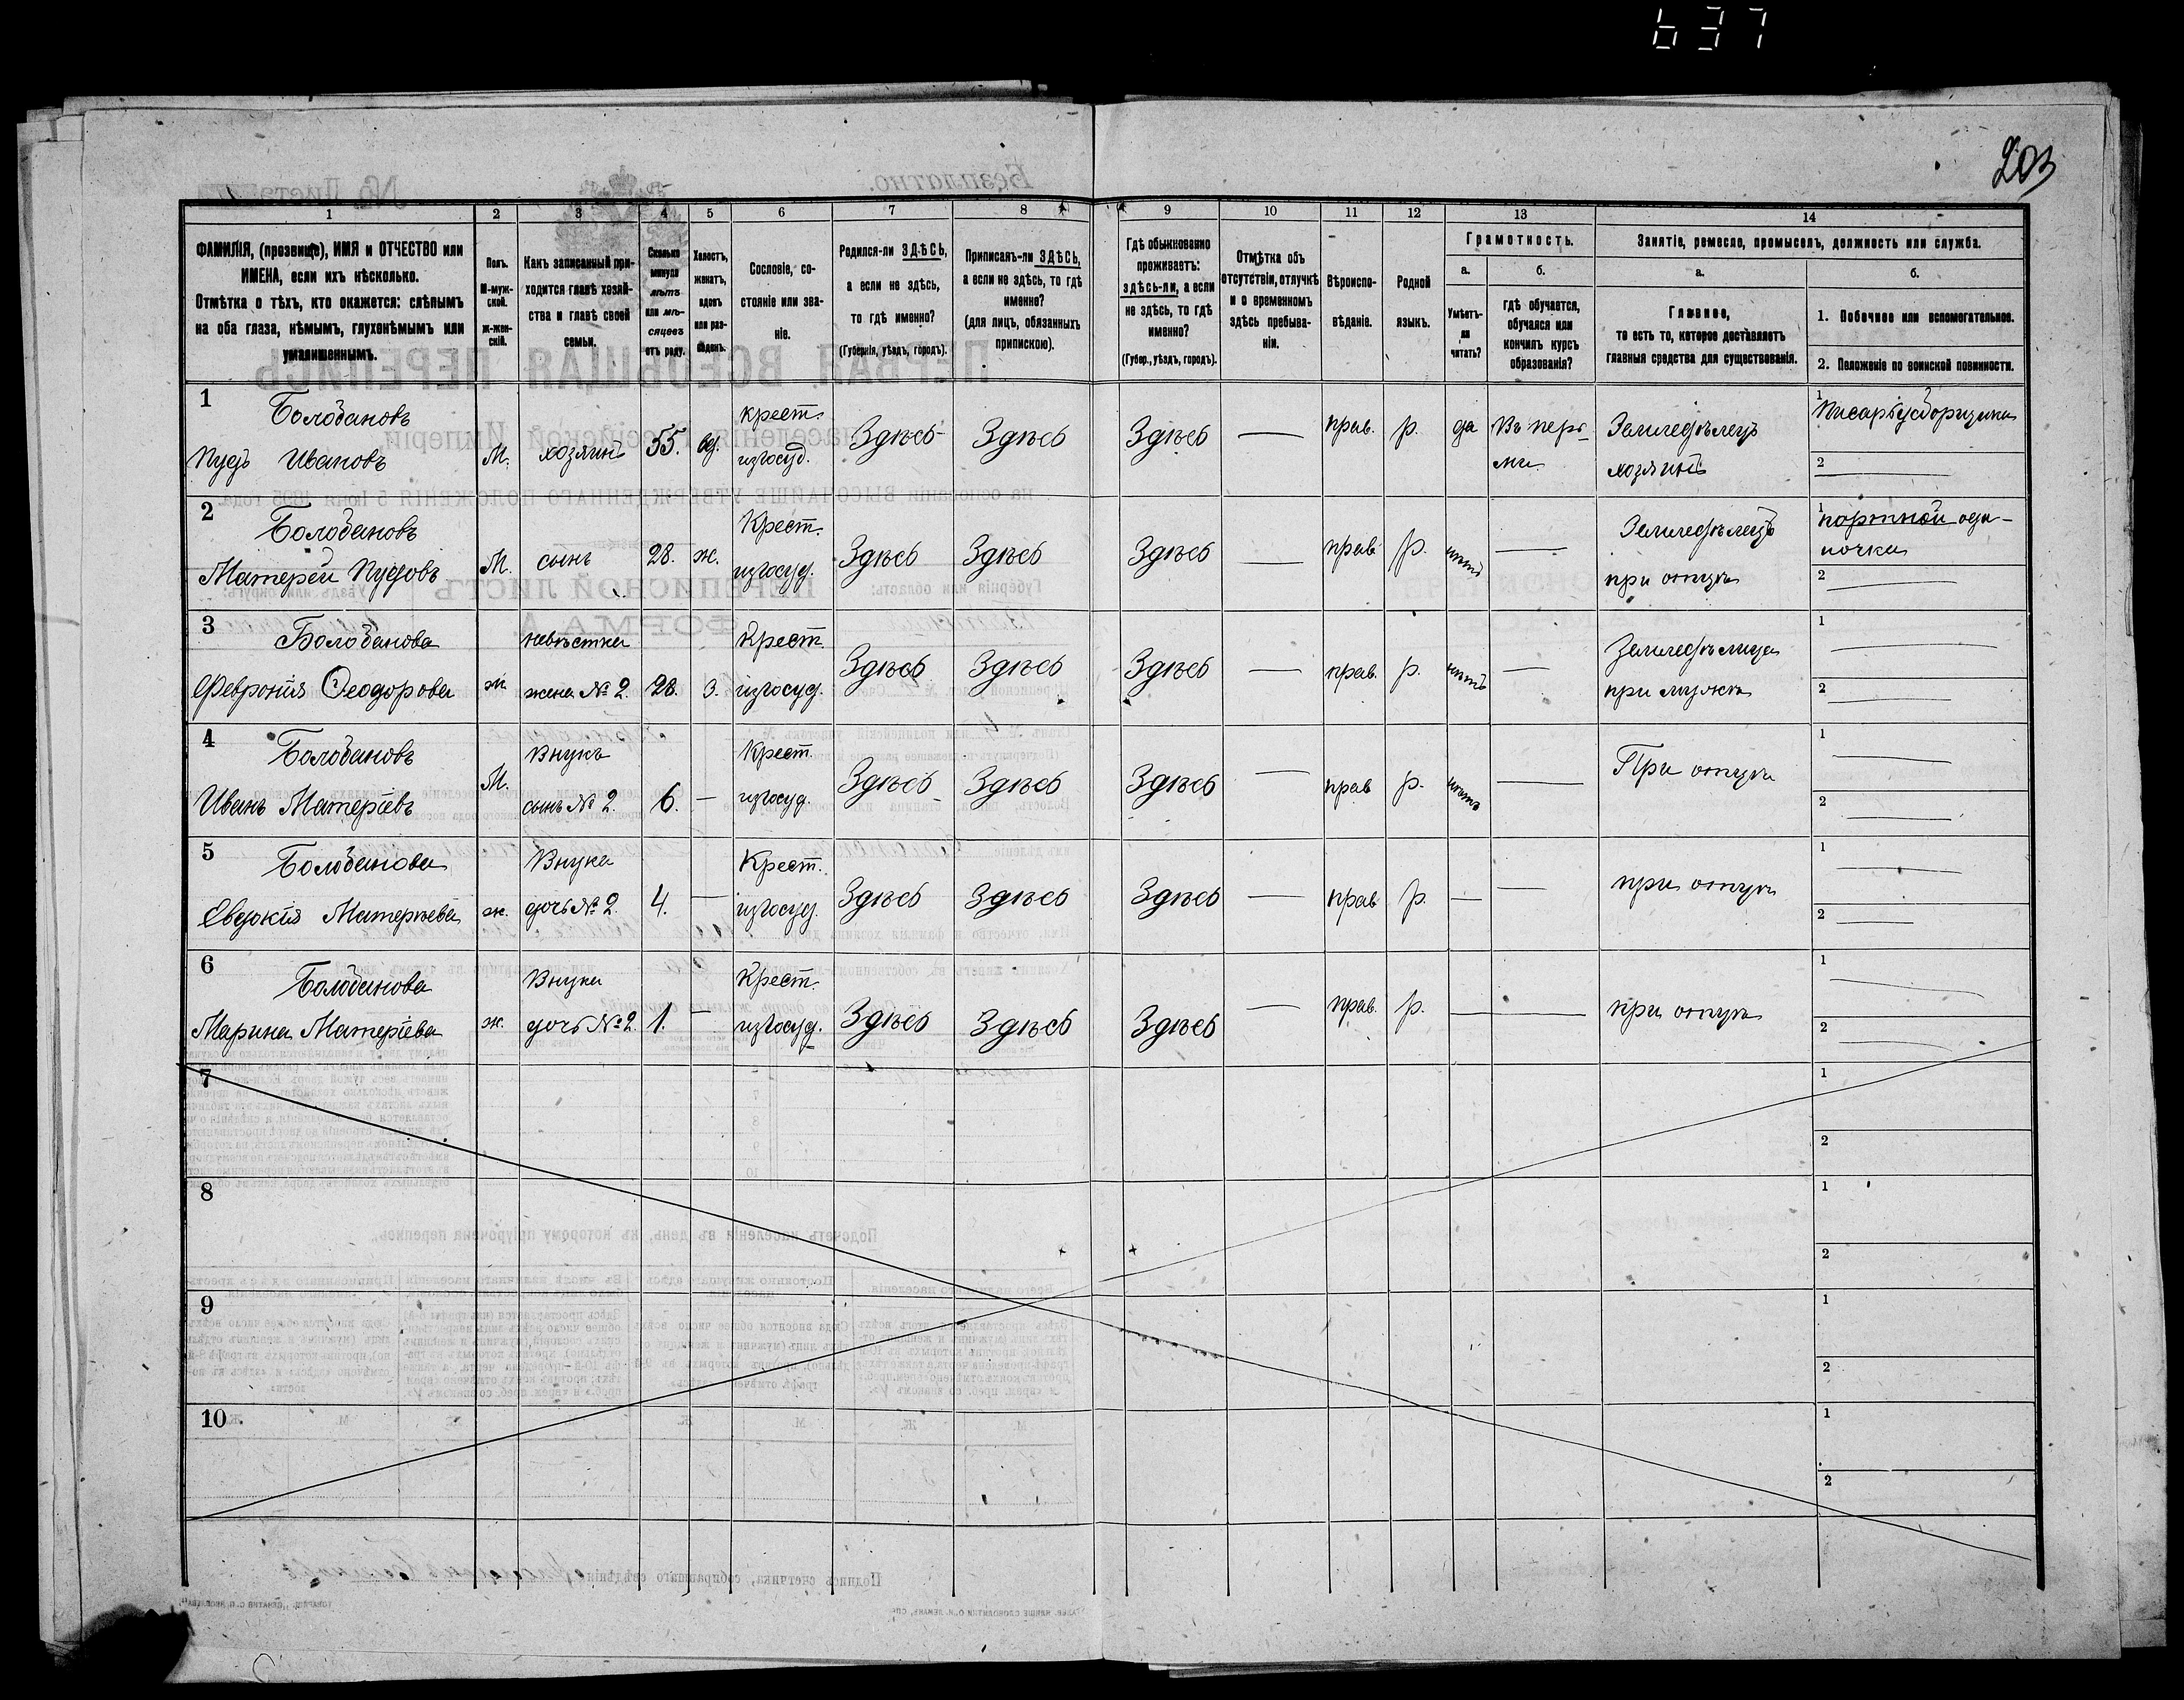 637
203
1 2 3 4 5 6 7 8 9 10 11 12 13 14
ФАМИЛІЯ, (прозвище), ИМЯ и ОТЧЕСТВО или
ИМЕНА, если ихъ нѣсколько.
Отмѣтка о тѣхъ, кто окажется: слѣпымъ
на оба глаза, нѣмымъ, глухонѣмымъ или
умалишеннымъ.
Полъ.
М-муж-
ской.
ж-жен-
скій.
Какъ записанный при-
ходится главѣ хозяй-
ства и главѣ своей
семьи.
Сколько
минуло
лѣтъ
или мѣ-
сяцевъ
отъ роду.
Холостъ,
женатъ,
вдовъ
или раз-
веденъ.
Сословіе, со-
стояніе или зва-
ніе.
Родился-ли ЗДѢСЬ,
а если не здѣсь,
то гдѣ именно?
(Губернія, уѣздъ, городъ).
Приписанъ-ли ЗДѢСЬ,
а если не здѣсь, то гдѣ
именно?
(для лицъ, обязанныхъ
припискою).
Гдѣ обыкновенно
проживаетъ:
здѣсь-ли, а если
не здѣсь, то гдѣ
именно?
(Губер., уѣздъ, городъ).
Отмѣтка объ
отсутствіи, отлучкѣ
и о временномъ
здѣсь пребыва-
ніи.
Вѣроиспо-
вѣданіе.
Родной
языкъ.
Грамотность.
а.
Умѣетъ-
ли
читать?
б.
Гдѣ обучается,
обучался или
кончилъ курсъ
образованія?
Занятіе, ремесло, промыселъ, должность или служба.
а.
Главное,
то есть то, которое доставляетъ
главныя средства для существованія.
б.
1. Побочное или вспомогательное.
2. Положеніе по воинской повинности.
1
Болобановъ
Пудъ Ивановъ
М.
хозяинъ
55.
вд.
крест.
изгосуд.
Здѣсь
Здѣсь
Здѣсь
прав.
р.
да
Земледѣлецъ
хозяинъ
1
2
2
Болобановъ
Матерей Пудовъ
М.
сынъ
28.
ж.
Крест.
изгосуд.
Здѣсь
Здѣсь
Здѣсь
прав
р.
нѣтъ
Земледѣлецъ
при отцѣ
1 портной оди-
ночка
2
3
Болобанова
Февронія Ѳеодорова
ж
невѣстка
жена № 2
28.
З.
Крест.
изгосуд.
Здѣсь
Здѣсь
Здѣсь
прав.
р.
нѣтъ
Земледѣлица
при мужѣ
1
2
4
Болобановъ
Иванъ Матеріевъ
М.
Внукъ
сынъ № 2.
6.
Крест.
изгосуд.
Здѣсь
Здѣсь
Здѣсь
прав
р.
нѣтъ
При отцѣ
1
2
5
Болобанова
Евдокія Матерѣева
ж.
Внука
дочь № 2.
4.
Крест.
изгосуд.
Здѣсь
Здѣсь
Здѣсь
прав
р.
при отцѣ
1
2
6
Болобанова
Марина Матеріева
ж.
Внука
дочь № 2
1.
Крест.
изгосуд.
Здѣсь
Здѣсь
Здѣсь
прав.
р.
при отцѣ
1
2
7
1
2
8
1
2
9
1
2
10
1
2